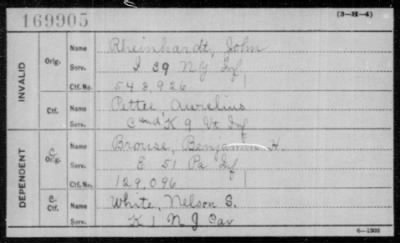 169905 (3-M-4)
INVALID
Orig. Name Rheinhardt, John
Serv. I 39 NJ Inf
Ctf. No. 548,926
Ctf. Name Pettee, Aurelius
Serv. C and K 9 Vt Inf
DEPENDENT
C. Orig. Name Brouse, Benjamin H.
Serv. E 51 Pa Inf
Ctf. No. 129,096
C. Ctf. Name White, Nelson S.
Serv. K 1 N J Cav
6-1903